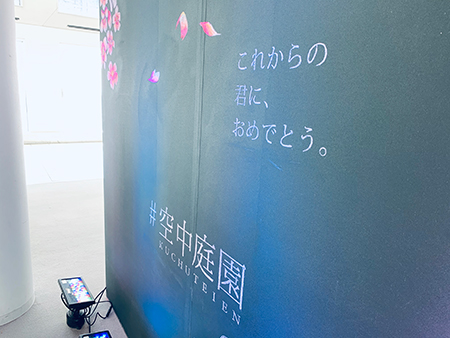 これからの
君に、
おめでとう。
#空中庭園
KUCHUTEIEN